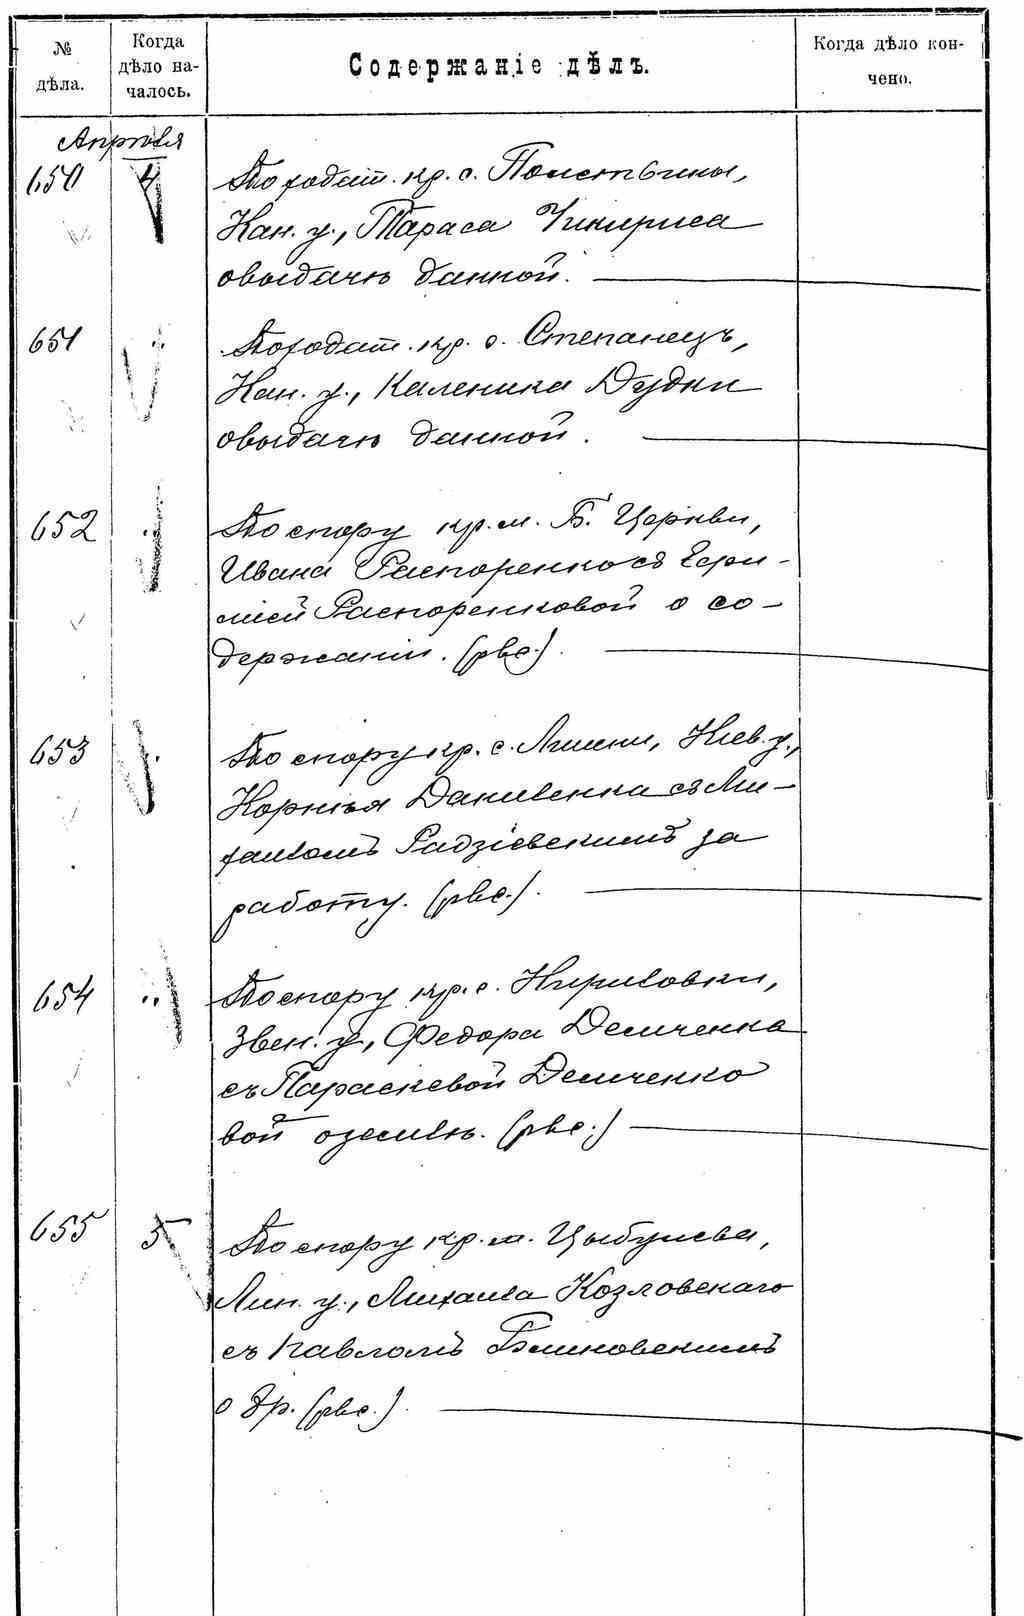 № дѣла.
Когда дѣло началось.
Содержаніе дѣлъ.
Когда дѣло кончено.
Апрѣля
650 4 По ходат. кр. с.
Кан. у., Тараса
о выдачѣ данной.
651 " По ходат. кр. с. Степанецъ,
Кан. у., Каленика Дудки
о выдачѣ данной.
652 " По спору кр. м. Б. Церкви,
Ивана Распоренко съ
Распоренковой о со-
держаніи. (рвс.)
653 " По спору кр. с. Кіев. у.,
Корнѣя Даниленка съ Ми-
хаиломъ Радзіевскимъ за
работу. (рвс.)
654 " По спору кр. с. Кириловки,
Звен. у., Федора Демченка
съ Параскевой Демченко
вой о землѣ. (рвс.)
655 5 По спору кр. м. Цыбулева,
Лип. у., Михаила Козловскаго
съ Павломъ
о др. (рвс.)